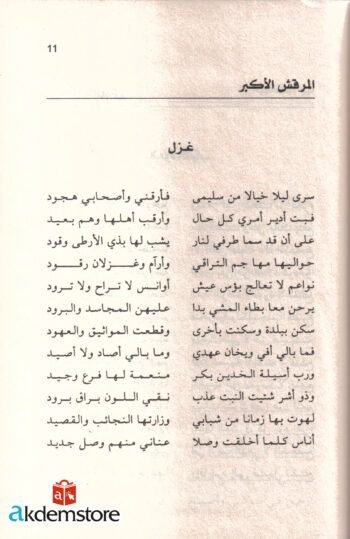 11
المرقش الأكبر
غزل
سرى ليلا خيالا من سليمى فأرقني وأصحابي هجود
فبت أدير أمري كل حال وأرقب أهلها وهم بعيد
على أن قد سما طرفي لنار يشب لها بذي الأرطى وقود
حواليها مها جم التراقي وأرآم وغزلان رقود
نواعم لا تعالج بؤس عيش أوانس لا تراح ولا ترود
يرحن معا بطاء المشي بدا عليهن المجاسد والبرود
سكن ببلدة وسكنت بأخرى وقطعت المواثيق والعهود
فما بالي أفي ويخان عهدي وما بالي أصاد ولا أصيد
ورب أسيلة الخدين بكر منعمة لها فرع وجيد
وذو أشر شتيت النبت عذب نقي اللون براق برود
لهوت بها زمانا من شبابي وزارتها النجائب والقصيد
أناس كلما أخلقت وصلا عناني منهم وصل جديد
akdemstore